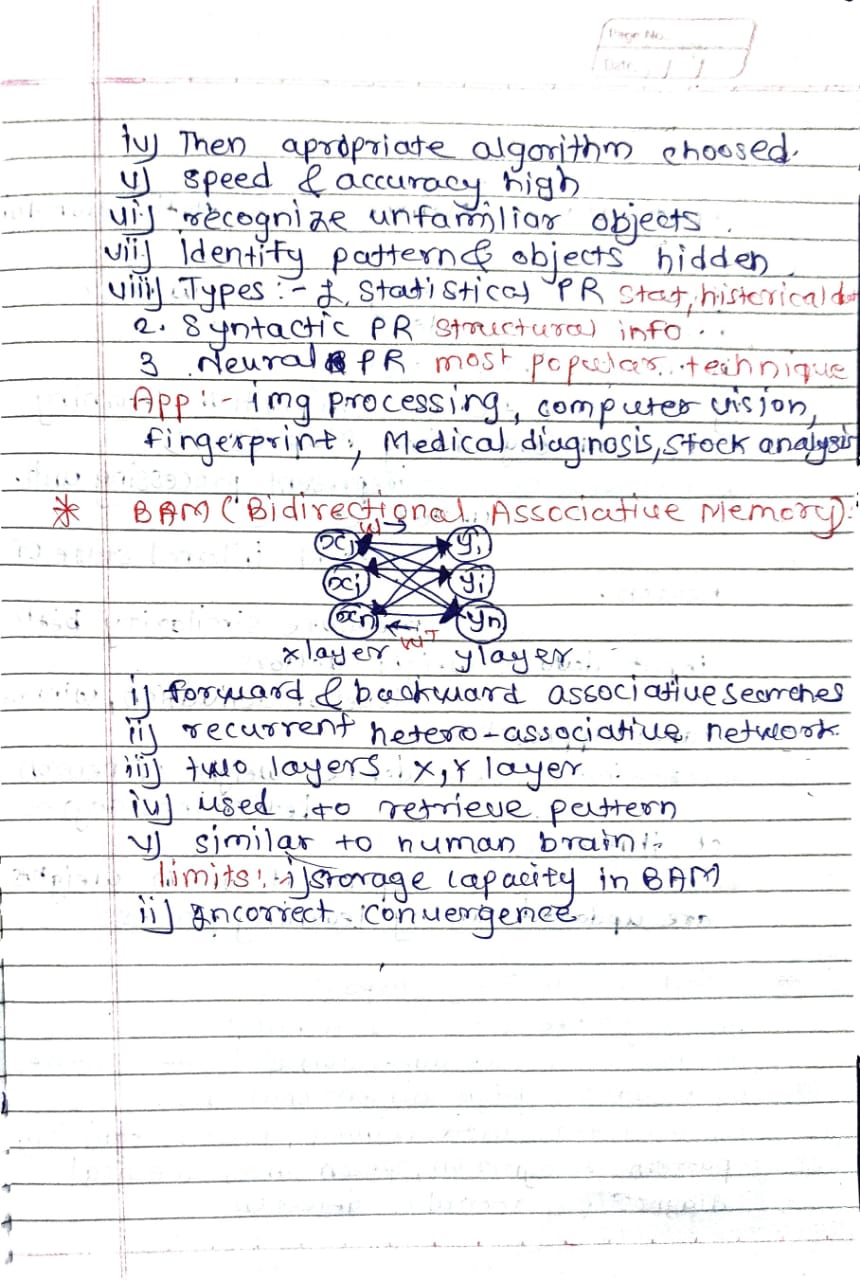 Page No.
Date / /
iv) Then apropriate algorithm choosed.
v) speed & accuracy high
vi) recognize unfamiliar objects
vii) Identify pattern & objects hidden
viii) Types :- 1. Statistical PR Stat, historical dat
2. Syntactic PR Structural info
3 Neural PR most popular technique
App :- img processing, computer vision,
fingerprint, Medical diagnosis, Stock analysis
* BAM (Bidirectional Associative Memory)
W →
xi yi
xj yj
xn yn
← WT
x layer y layer
i) forward & backward associative searches
ii) recurrent hetero-associative network
iii) two layers x, Y layer
iv) used to retrieve pattern
v) similar to human brain
limits :- i) storage capacity in BAM
ii) Incorrect convergence